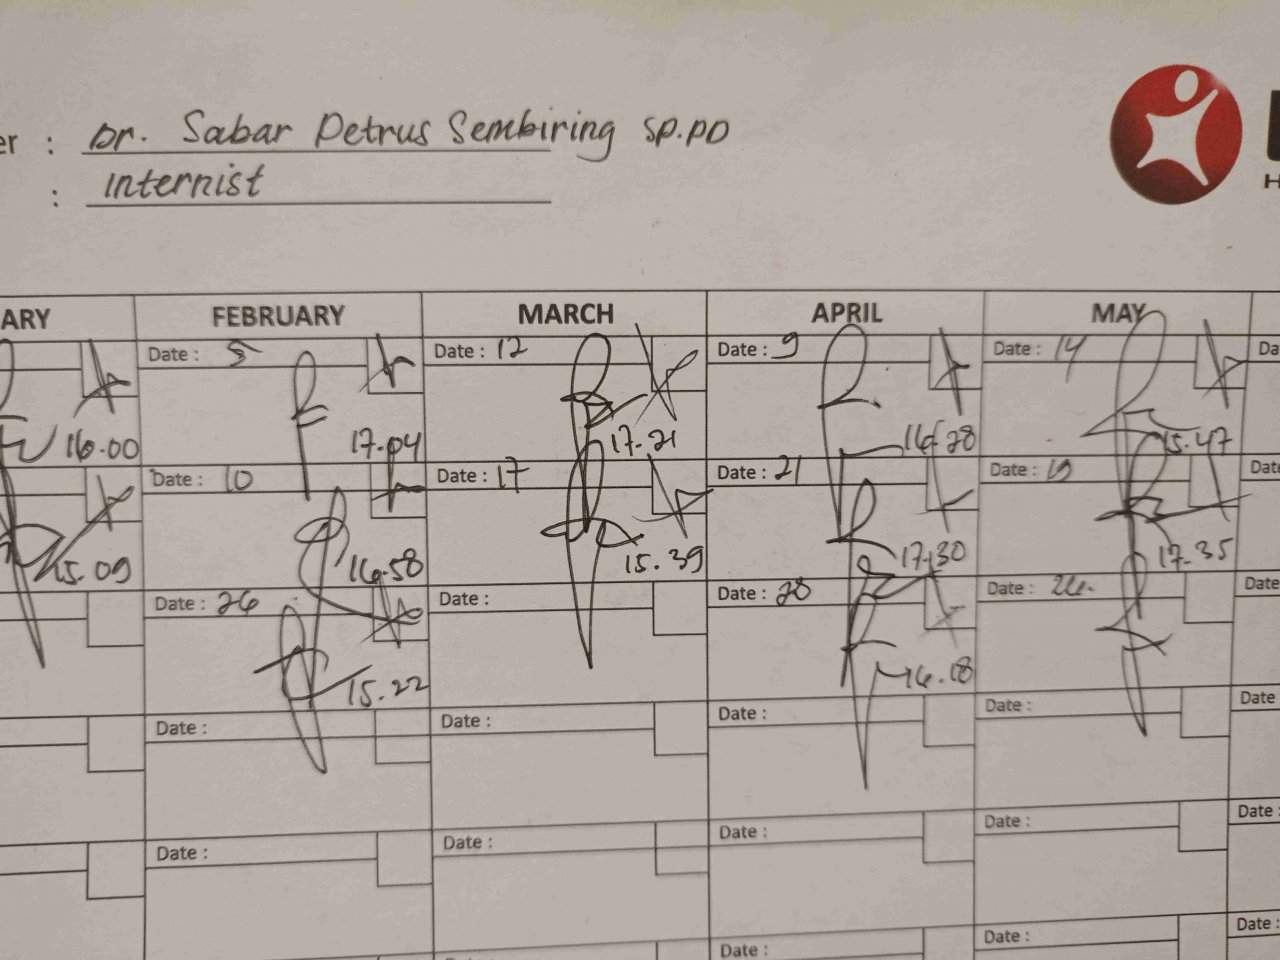 er : Dr. Sabar Petrus Sembiring SP.PD
: Internist
H
ARY FEBRUARY MARCH APRIL MAY
Date : 5 Date : 12 Date : 9 Date : 14 Da
16.00 17.04 17.21 16.28 15.47
Date : 10 Date : 17 Date : 21 Date : 19 Date
15.09 16.58 15.39 17.30 17.35
Date : 26 Date : Date : 28 Date : Date
15.22 16.18
Date : Date : Date : Date : Date
Date : Date : Date : Date : Date :
Date : Date : Date :